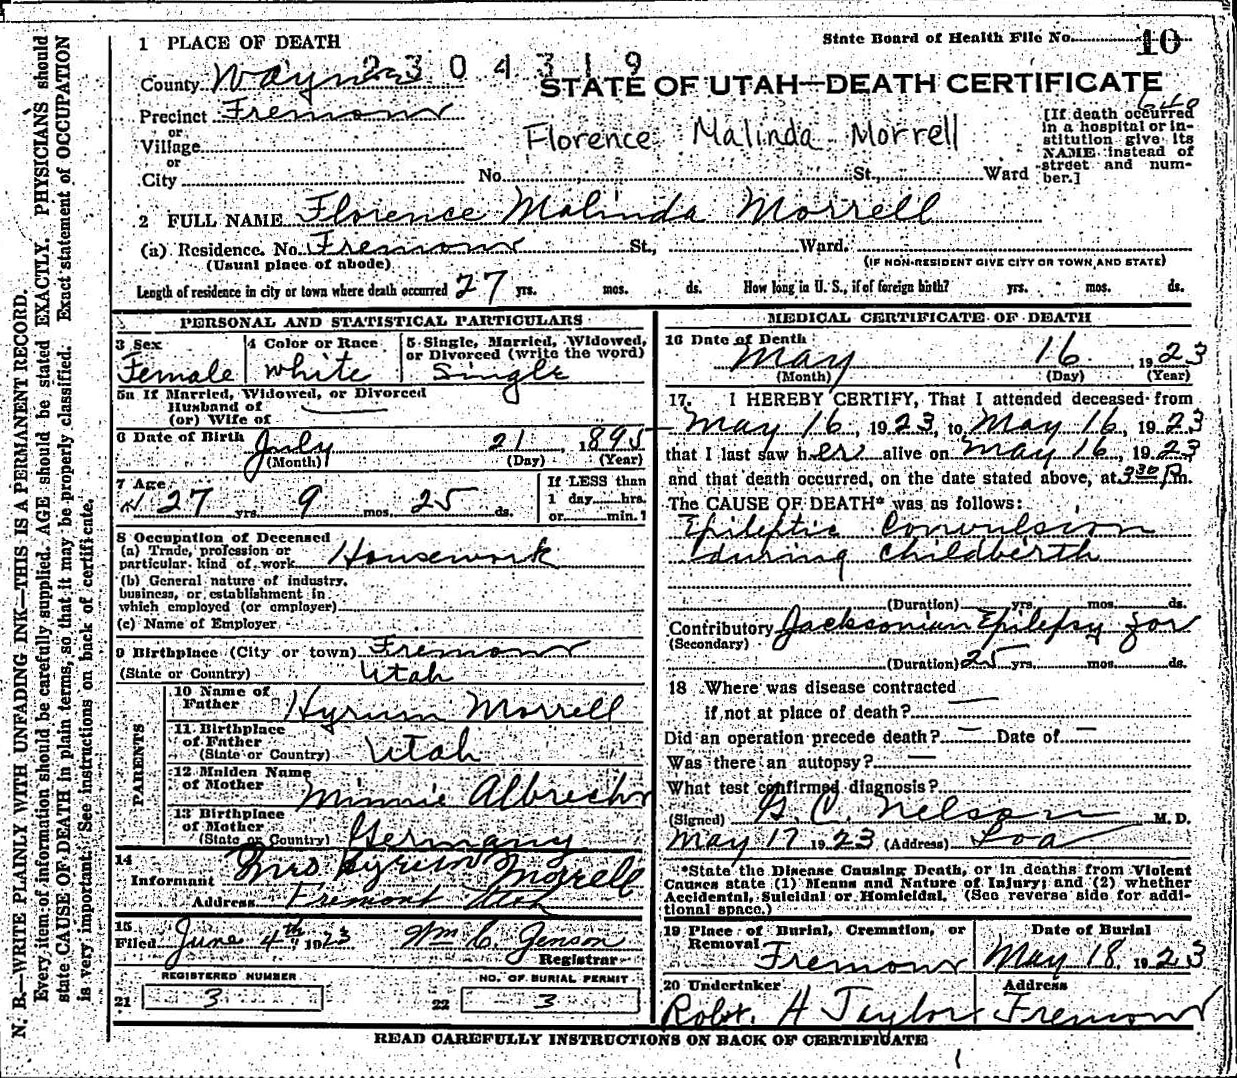 1 PLACE OF DEATH
State Board of Health File No. 10
County Wayne 2304319
STATE OF UTAH—DEATH CERTIFICATE
Precinct Fremont
648
[If death occurred in a hospital or institution give its NAME instead of street and number.]
or
Village
Florence Malinda Morrell
or
City No. St., Ward
2 FULL NAME Florence Malinda Morrell
(a) Residence. No. Fremont St., Ward.
(Usual place of abode) (IF NON-RESIDENT GIVE CITY OR TOWN AND STATE)
Length of residence in city or town where death occurred 27 yrs. mos. ds. How long in U. S., if of foreign birth? yrs. mos. ds.
PERSONAL AND STATISTICAL PARTICULARS
3 Sex
Female
4 Color or Race
White
5 Single, Married, Widowed,
or Divorced (write the word)
Single
5a If Married, Widowed, or Divorced
Husband of
(or) Wife of
6 Date of Birth July 21, 1895
(Month) (Day) (Year)
7 Age
27 yrs. 9 mos. 25 ds.
If LESS than
1 day hrs.
or min.?
8 Occupation of Deceased
(a) Trade, profession or
particular kind of work Housework
(b) General nature of industry,
business, or establishment in
which employed (or employer)
(c) Name of Employer
9 Birthplace (City or town) Fremont
(State or Country) Utah
PARENTS
10 Name of
Father Hyrum Morrell
11 Birthplace
of Father
(State or Country) Utah
12 Maiden Name
of Mother Minnie Albrecht
13 Birthplace
of Mother
(State or Country) Germany
14
Informant Mrs Hyrum Morrell
Address Fremont Utah
15
Filed June 4th 1923 Wm C. Jenson
Registrar
REGISTERED NUMBER
21 3
NO. OF BURIAL PERMIT
22 3
MEDICAL CERTIFICATE OF DEATH
16 Date of Death
May 16, 1923
(Month) (Day) (Year)
17. I HEREBY CERTIFY, That I attended deceased from
May 16, 1923, to May 16, 1923
that I last saw her alive on May 16, 1923
and that death occurred, on the date stated above, at 3 30 P.m.
The CAUSE OF DEATH* was as follows:
Epileptic Convulsion
during childbirth
(Duration) yrs. mos. ds.
Contributory Jacksonian Epilepsy for
(Secondary)
(Duration) 25 yrs. mos. ds.
18 Where was disease contracted
if not at place of death?
Did an operation precede death? — Date of —
Was there an autopsy? —
What test confirmed diagnosis?
(Signed) G. C. Nelson M. D.
May 17 1923 (Address) Loa
*State the Disease Causing Death, or in deaths from Violent
Causes state (1) Means and Nature of Injury; and (2) whether
Accidental, Suicidal or Homicidal. (See reverse side for addi-
tional space.)
19 Place of Burial, Cremation, or
Removal
Fremont
Date of Burial
May 18, 1923
20 Undertaker
Robt. H Taylor
Address
Fremont
READ CAREFULLY INSTRUCTIONS ON BACK OF CERTIFICATE
N. B.—WRITE PLAINLY WITH UNFADING INK—THIS IS A PERMANENT RECORD.
Every item of information should be carefully supplied. AGE should be stated EXACTLY. PHYSICIANS should
state CAUSE OF DEATH in plain terms, so that it may be properly classified. Exact statement of OCCUPATION
is very important. See instructions on back of certificate.